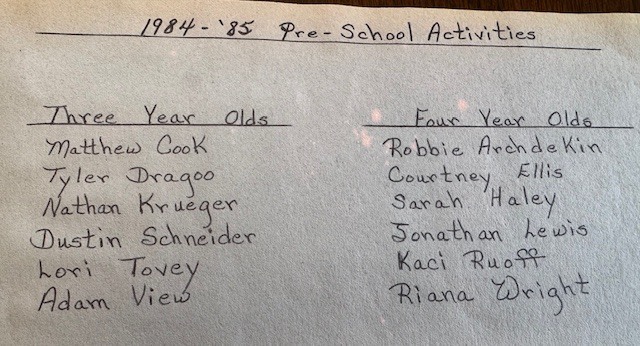 1984-'85 Pre-School Activities
Three Year Olds
Matthew Cook
Tyler Dragoo
Nathan Krueger
Dustin Schneider
Lori Tovey
Adam View
Four Year Olds
Robbie Archdekin
Courtney Ellis
Sarah Haley
Jonathan Lewis
Kaci Ruoff
Riana Wright